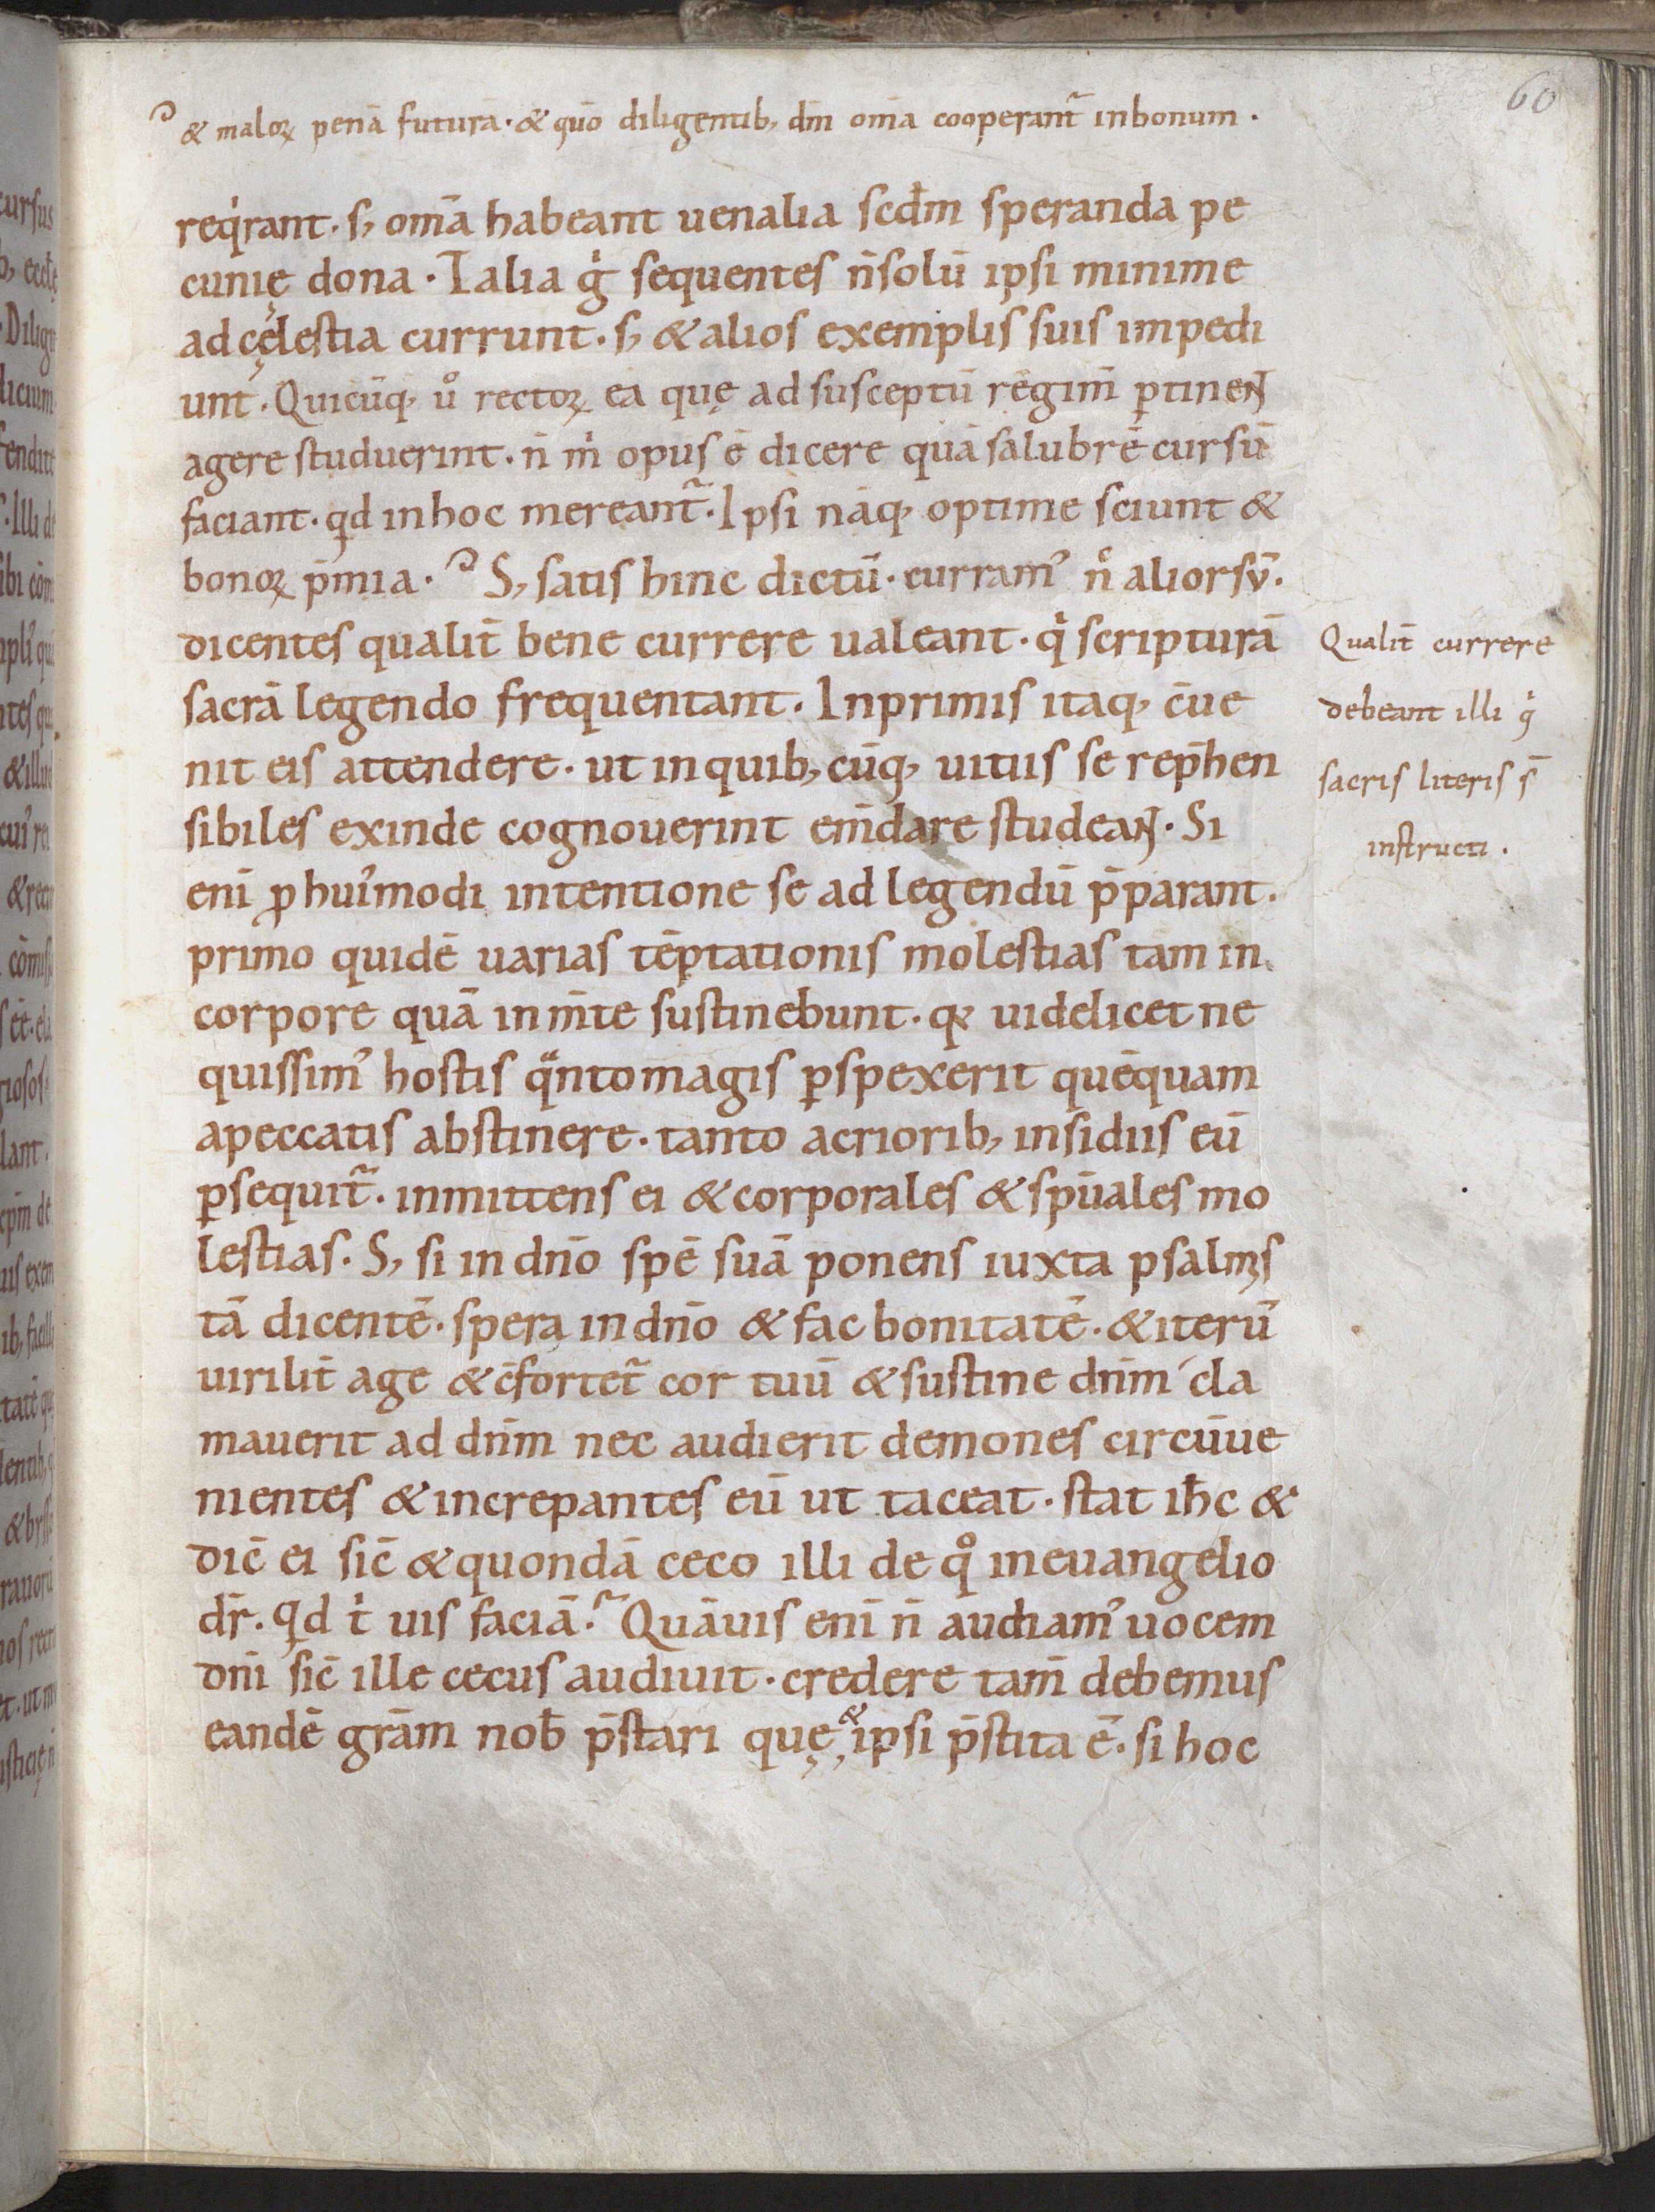 60
& maloꝝ penā futurā· & quō diligentib; dm̄ om̄a cooperant᷑ inbonum·
reqͥrant· s; om̄a habeant uenalia scd̄m speranda pe
cunię dona· Talia gͥ sequentes n̄solū ipsi minime
ad cęlestia currunt· s; & alios exemplis suis impedi
unt· Quicūq; uͦ rectoꝝ ea quę ad susceptū regim̄ ꝑtineɴᴛ
agere studuerint· n̄ mͥ opus ē dicere quā salubrē cursū
faciant· qd̄ inhoc mereant᷑· Ipsi nāq; optime sciunt &
bonoꝝ p̄mia· S; satis hinc dictū· curramꝰ nͨ aliorsū·
dicentes qualit̄ bene currere ualeant· qͥ scripturā
sacrā legendo frequentant· Inprimis itaq; c̄ue
nit eis attendere· ut inquib; cūq; uitiis se rep̄hen
sibiles exinde cognouerint em̄dare studeaɴᴛ· Si
eni̅ ꝓ huiꝰmodi intentione se ad legendū p̄parant·
primo quidē uarias tēptationis molestias tam in
corpore quā inm̄te sustinebunt· q; uidelicet ne
quissimꝰ hostis qͣntomagis ꝑspexerit quēquam
apeccatis abstinere· tanto acriorib; insidiis eū
ꝑsequit᷑· inmittens ei & corporales & sp̄uales mo
lestias· S; si in dn̄o spē suā ponens iuxta psalmis
tā dicentē· spera in dn̄o & fac bonitatē· & iterū
uirilit̄ age & c̄fortet᷑ cor tuū & sustine dn̄m cla
mauerit ad dn̄m nec audierit demones circūue
nientes & increpantes eū ut taceat· stat ih̄c &
dic̄ ei sic̄ & quondā ceco illi de qͦ ineuangelio
dr̄· qd̄ tͥ uis faciā? Quāuis eni̅ n̄ audiamꝰ uocem
dn̄i sic̄ ille cecus audiuit· credere tam̄ debemus
eandē grām nob̄ p̄stari quę & ipsi p̄stita ē· si hoc
Qualit̄ currere
debeant illi qͥ
sacris literis s̄
instructi·